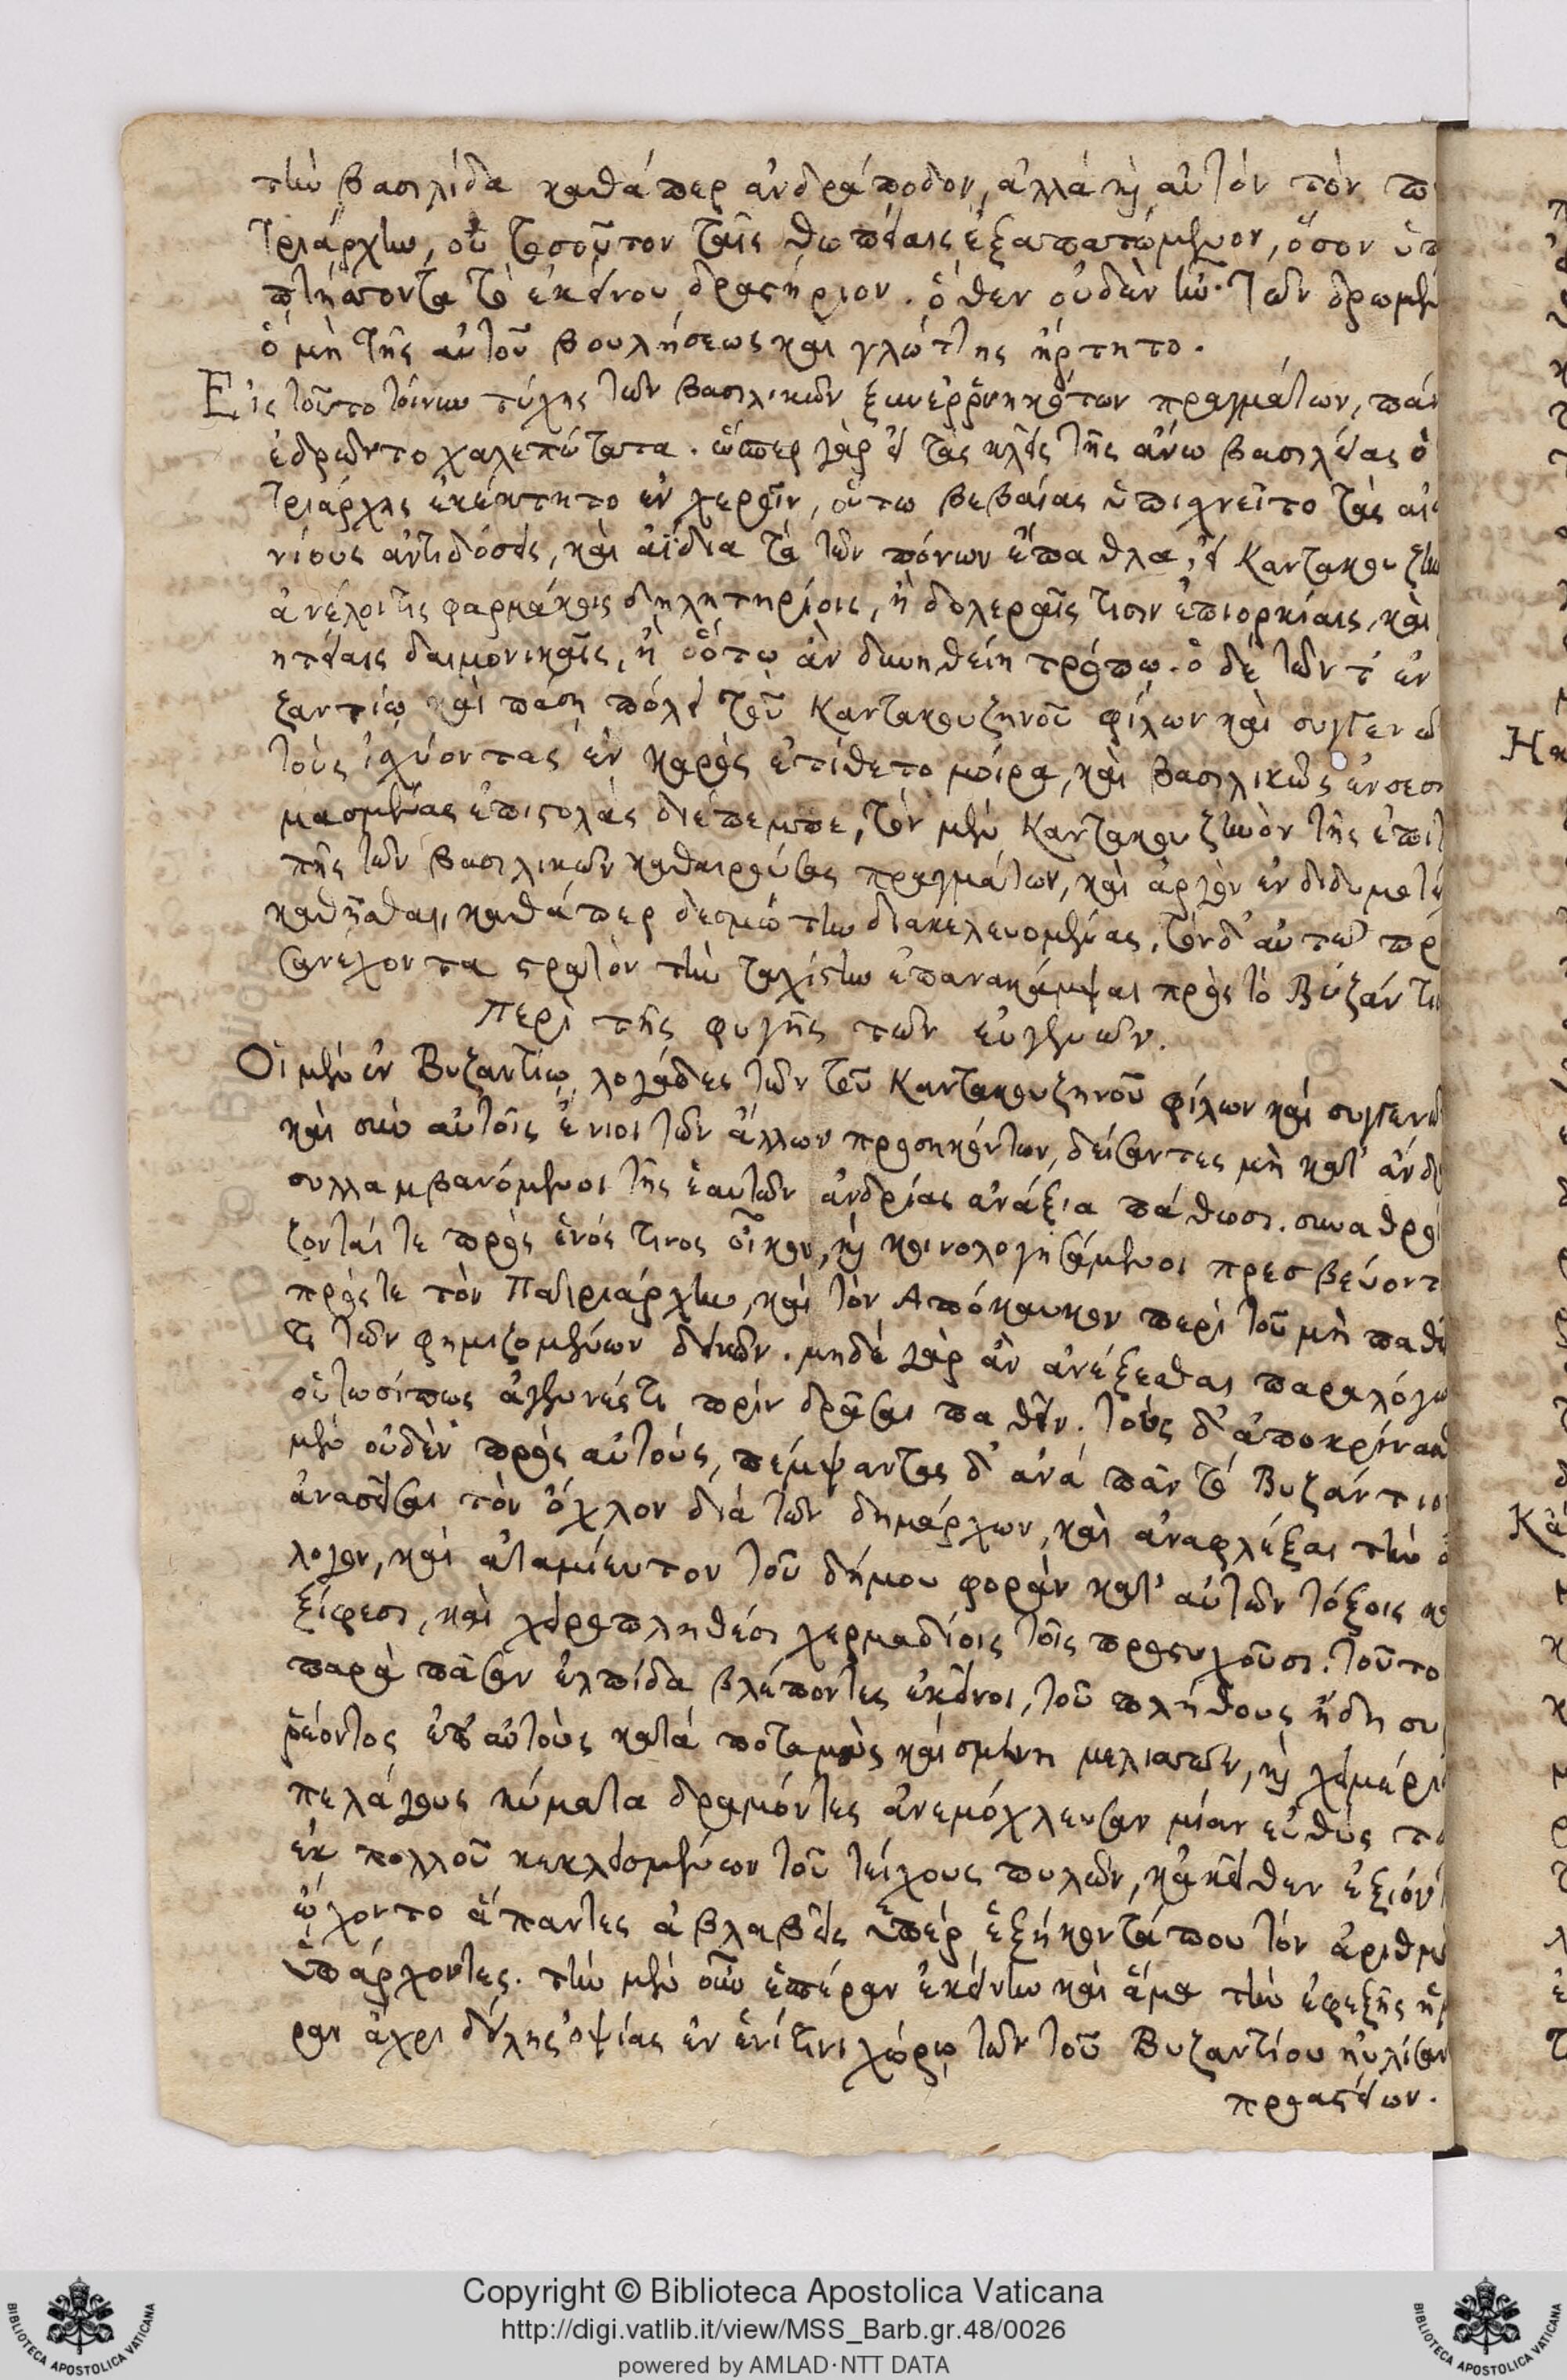 τὴν βασιλίδα καθάπερ ἀνδράποδον, ἀλλὰ καὶ αὐτὸν τὸν π
τριάρχην, οὐ τοσοῦτον ταῖς θωπείαις ἐξαπατώμενον, ὅσον ὑπ
πτήσσοντα τὸ ἐκείνου δραστήριον. ὅθεν οὐδὲν ἦν τῶν δρωμέν
ὃ μὴ τῆς αὐτοῦ βουλήσεως καὶ γλώττης ἤρτητο.
Εἰς τοῦτο τοίνυν τύχης τῶν βασιλικῶν ξυνερρυηκότων πραγμάτων, πάν
ἐδρῶντο χαλεπώτατα. ὥσπερ γὰρ εἰ τὰς κλεῖς τῆς ἄνω βασιλείας ὁ
τριάρχης ἐκέκτητο ἐν χερσὶν, οὕτω βεβαίας ὑπισχνεῖτο τὰς αἰω
νίους ἀντιδόσεις, καὶ ἀΐδια τὰ τῶν πόνων ἔπαθλα, εἰ Καντακουζην
ἀνέλοι τις φαρμάκοις δηλητηρίοις, ἢ δολεραῖς τισὶν ἐπιορκίαις, καὶ
ητείαις δαιμονικαῖς, ἢ ὅτῳ ἂν δυνηθείη τρόπῳ. ὁ δὲ τῶν τ' ἐν
ζαντίῳ καὶ πάσῃ πόλει τοῦ Καντακουζηνοῦ φίλων καὶ συγγενῶ
τοὺς ἰσχύοντας ἐν καρὸς ἐτίθετο μοίρᾳ, καὶ βασιλικῶς ἐνσεση
μασμένας ἐπιστολὰς διέπεμπε, τὸν μὲν Καντακουζηνὸν τῆς ἐπιτ
πῆς τῶν βασιλικῶν καθαιρούσας πραγμάτων, καὶ ἀργὸν ἐν διδυμοτεί
καθῆσθαι, καθάπερ δεσμώτην διακελευομένας, τὸν δ' αὐτῷ πρ
σανέχοντα στρατὸν τὴν ταχίστην ἐπανακάμψαι πρὸς τὸ Βυζάντι
Περὶ τῆς φυγῆς τῶν εὐγενῶν.
Οἱ μὲν ἐν Βυζαντίῳ λογάδες τῶν τοῦ Καντακουζηνοῦ φίλων καὶ συγγενῶ
καὶ σὺν αὐτοῖς ἔνιοι τῶν ἄλλων προσηκόντων, δείσαντες μὴ κατ' ἄνδρ
συλλαμβανόμενοι τῆς ἑαυτῶν ἀνδρίας ἀνάξια πάθωσι. συναθροί
ζονταί τε πρὸς ἑνός τινος οἶκον, καὶ κοινολογησάμενοι πρεσβεύοντ
πρός τε τὸν Πατριάρχην, καὶ τὸν Ἀπόκαυκον περὶ τοῦ μὴ παθεῖ
τι τῶν φημιζομένων δεινῶν. μηδὲ γὰρ ἂν ἀνέξεσθαι παραλόγω
οὑτωσίπως ἀγεννές τι πρὶν δρᾶσαι παθεῖν. τοὺς δ' ἀποκρίνασ
μὲν οὐδὲν πρὸς αὐτούς, πέμψαντας δ' ἀνὰ πᾶν τὸ Βυζάντιον
ἀνασεῖσαι τὸν ὄχλον διὰ τῶν δημάρχων, καὶ ἀναφλέξαι τὴν ἄ
λογον, καὶ ἀταμίευτον τοῦ δήμου φορὰν κατ' αὐτῶν τόξοις κα
ξίφεσι, καὶ χειροπληθέσι χερμαδίοις τοῖς προστυχοῦσι. τοῦτο
παρὰ πᾶσαν ἐλπίδα βλέποντες ἐκεῖνοι, τοῦ πλήθους ἤδη συρ
ρέοντος ἐπ' αὐτοὺς κατὰ ποταμοὺς καὶ σμήνη μελισσῶν, καὶ χειμερίο
πελάγους κύματα δραμόντες ἀνεμόχλευσαν μίαν εὐθὺς τῶ
ἐκ πολλοῦ κεκλεισμένων τοῦ τείχους πυλῶν, κἀκεῖθεν ἐξιόντ
ᾤχοντο ἅπαντες ἀβλαβεῖς ὑπὲρ ἑξήκοντά που τὸν ἀριθμὸ
ὑπάρχοντες. τὴν μὲν οὖν ἑσπέραν ἐκείνην καὶ ἅμα τὴν ἐφεξῆς ἡμ
ραν ἄχρι δείλης ὀψίας ἐν ἑνί τινι χώρῳ τῶν τοῦ Βυζαντίου ηὐλίσαν
προαστείων.
Copyright © Biblioteca Apostolica Vaticana
http://digi.vatlib.it/view/MSS_Barb.gr.48/0026
powered by AMLAD·NTT DATA
BIBLIOTECA APOSTOLICA VATICANA
BIBLIOTECA APOSTOLICA VATICANA